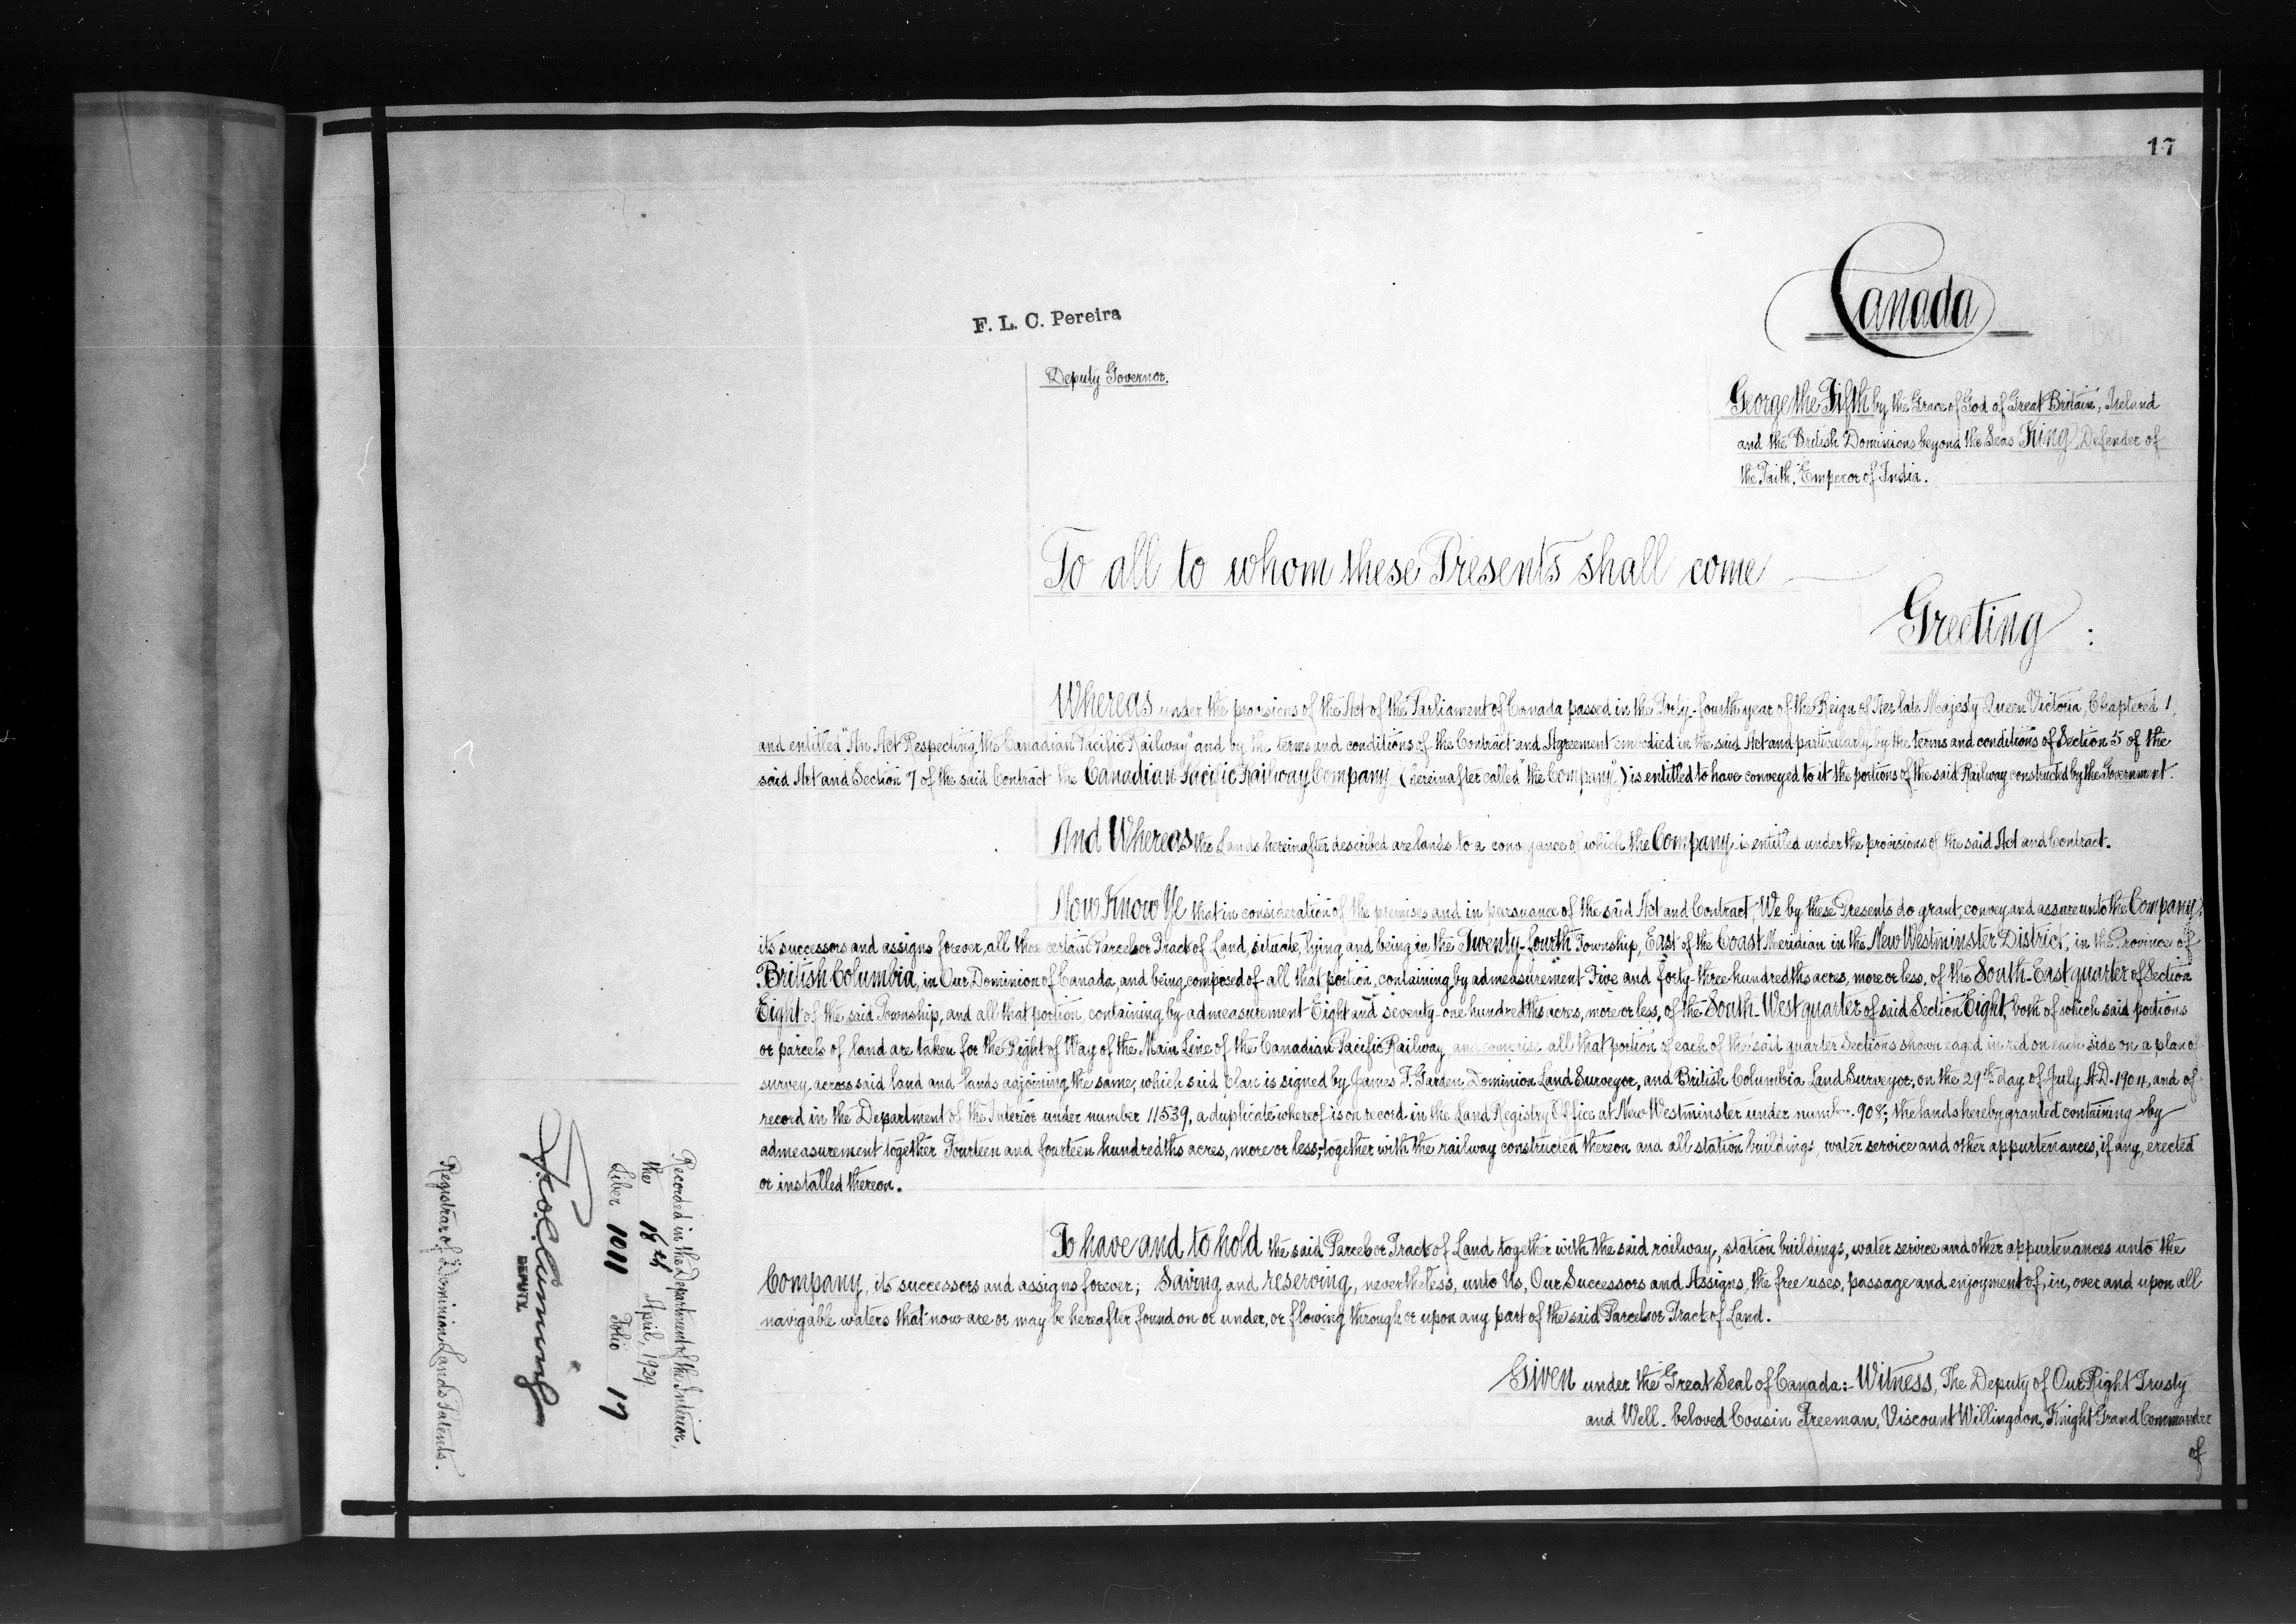 17
Canada
F. L. C. Pereira
Deputy Governor.
George the Fifth by the Grace of God of Great Britain, Ireland
and the British Dominions beyond the Seas King, Defender of
the Faith, Emperor of India.
To all to whom these Presents shall come
Greeting :
Whereas under the provisions of the Act of the Parliament of Canada passed in the Forty-fourth year of the Reign of Her late Majesty Queen Victoria, Chaptered 1,
and entitled "An Act Respecting the Canadian Pacific Railway" and by the terms and conditions of the Contract and Agreement embodied in the said Act and particularly by the terms and conditions of Section 5 of the
said Act and Section 7 of the said Contract the Canadian Pacific Railway Company (hereinafter called "the Company") is entitled to have conveyed to it the portions of the said Railway constructed by the Government.
And Whereas the Lands hereinafter described are lands to a conveyance of which the Company is entitled under the provisions of the said Act and Contract.
Now Know Ye that in consideration of the premises and in pursuance of the said Act and Contract, We by these Presents do grant, convey and assure unto the Company,
its successors and assigns forever, all those certain Parcels or Tracts of Land, situate, lying and being in the Twenty-fourth Township, East of the Coast Meridian in the New Westminster District, in the Province of
British Columbia, in Our Dominion of Canada, and being composed of all that portion, containing by admeasurement Five and forty-three hundredths acres, more or less, of the South-East quarter of Section
Eight of the said Township, and all that portion, containing by admeasurement Eight and seventy-one hundredths acres, more or less, of the South West quarter of said Section Eight, both of which said portions
or parcels of land are taken for the Right of Way of the Main Line of the Canadian Pacific Railway, and comprise all that portion of each of the said quarter Sections shown edged in red on each side on a plan of
survey across said land and lands adjoining the same, which said Plan is signed by James F. Garden Dominion Land Surveyor, and British Columbia Land Surveyor, on the 29th day of July A.D. 1904, and of
record in the Department of the Interior under number 11539, a duplicate whereof is on record in the Land Registry Office at New Westminster under number 908; the lands hereby granted containing by
admeasurement together Fourteen and fourteen hundredths acres, more or less, together with the railway constructed thereon and all station buildings, water service and other appurtenances, if any, erected
or installed thereon.
To have and to hold the said Parcels or Tracts of Land together with the said railway, station buildings, water service and other appurtenances unto the
Company, its successors and assigns forever; Saving and reserving, nevertheless, unto Us, Our Successors and Assigns, the free uses, passage and enjoyment of, in, over and upon all
navigable waters that now are or may be hereafter found on or under, or flowing through or upon any part of the said Parcels or Tracts of Land.
Given under the Great Seal of Canada:- Witness, The Deputy of Our Right Trusty
and Well-beloved Cousin Freeman, Viscount Willingdon, Knight Grand Commander
of
Recorded in the Department of the Interior,
the 18th April, 1929
Liber 1011 Folio 17
DEPUTY.
Registrar of Dominion Lands Patents.